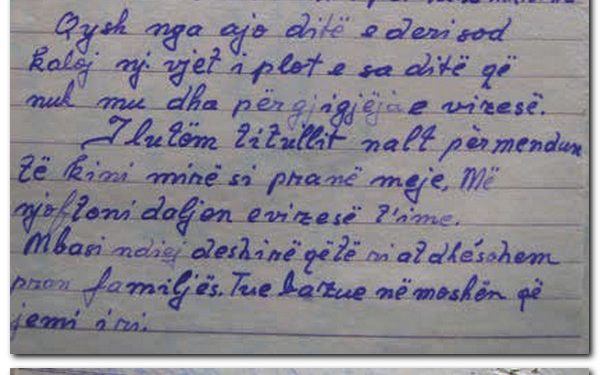 Qysh nga ajo ditë e deri sod
kaloj nji vjet i plot e sa ditë që
nuk mu dha përgjigjëja e vizesë.
I lutëm titullit nalt përmendun
të kini mirësi pranë meje, Më
njoftoni daljen e vizesë t'ime.
Mbasi ndiej deshirë që të ri atdhésohem
pran familjës. Tue bazue në moshën që
jemi i ri.